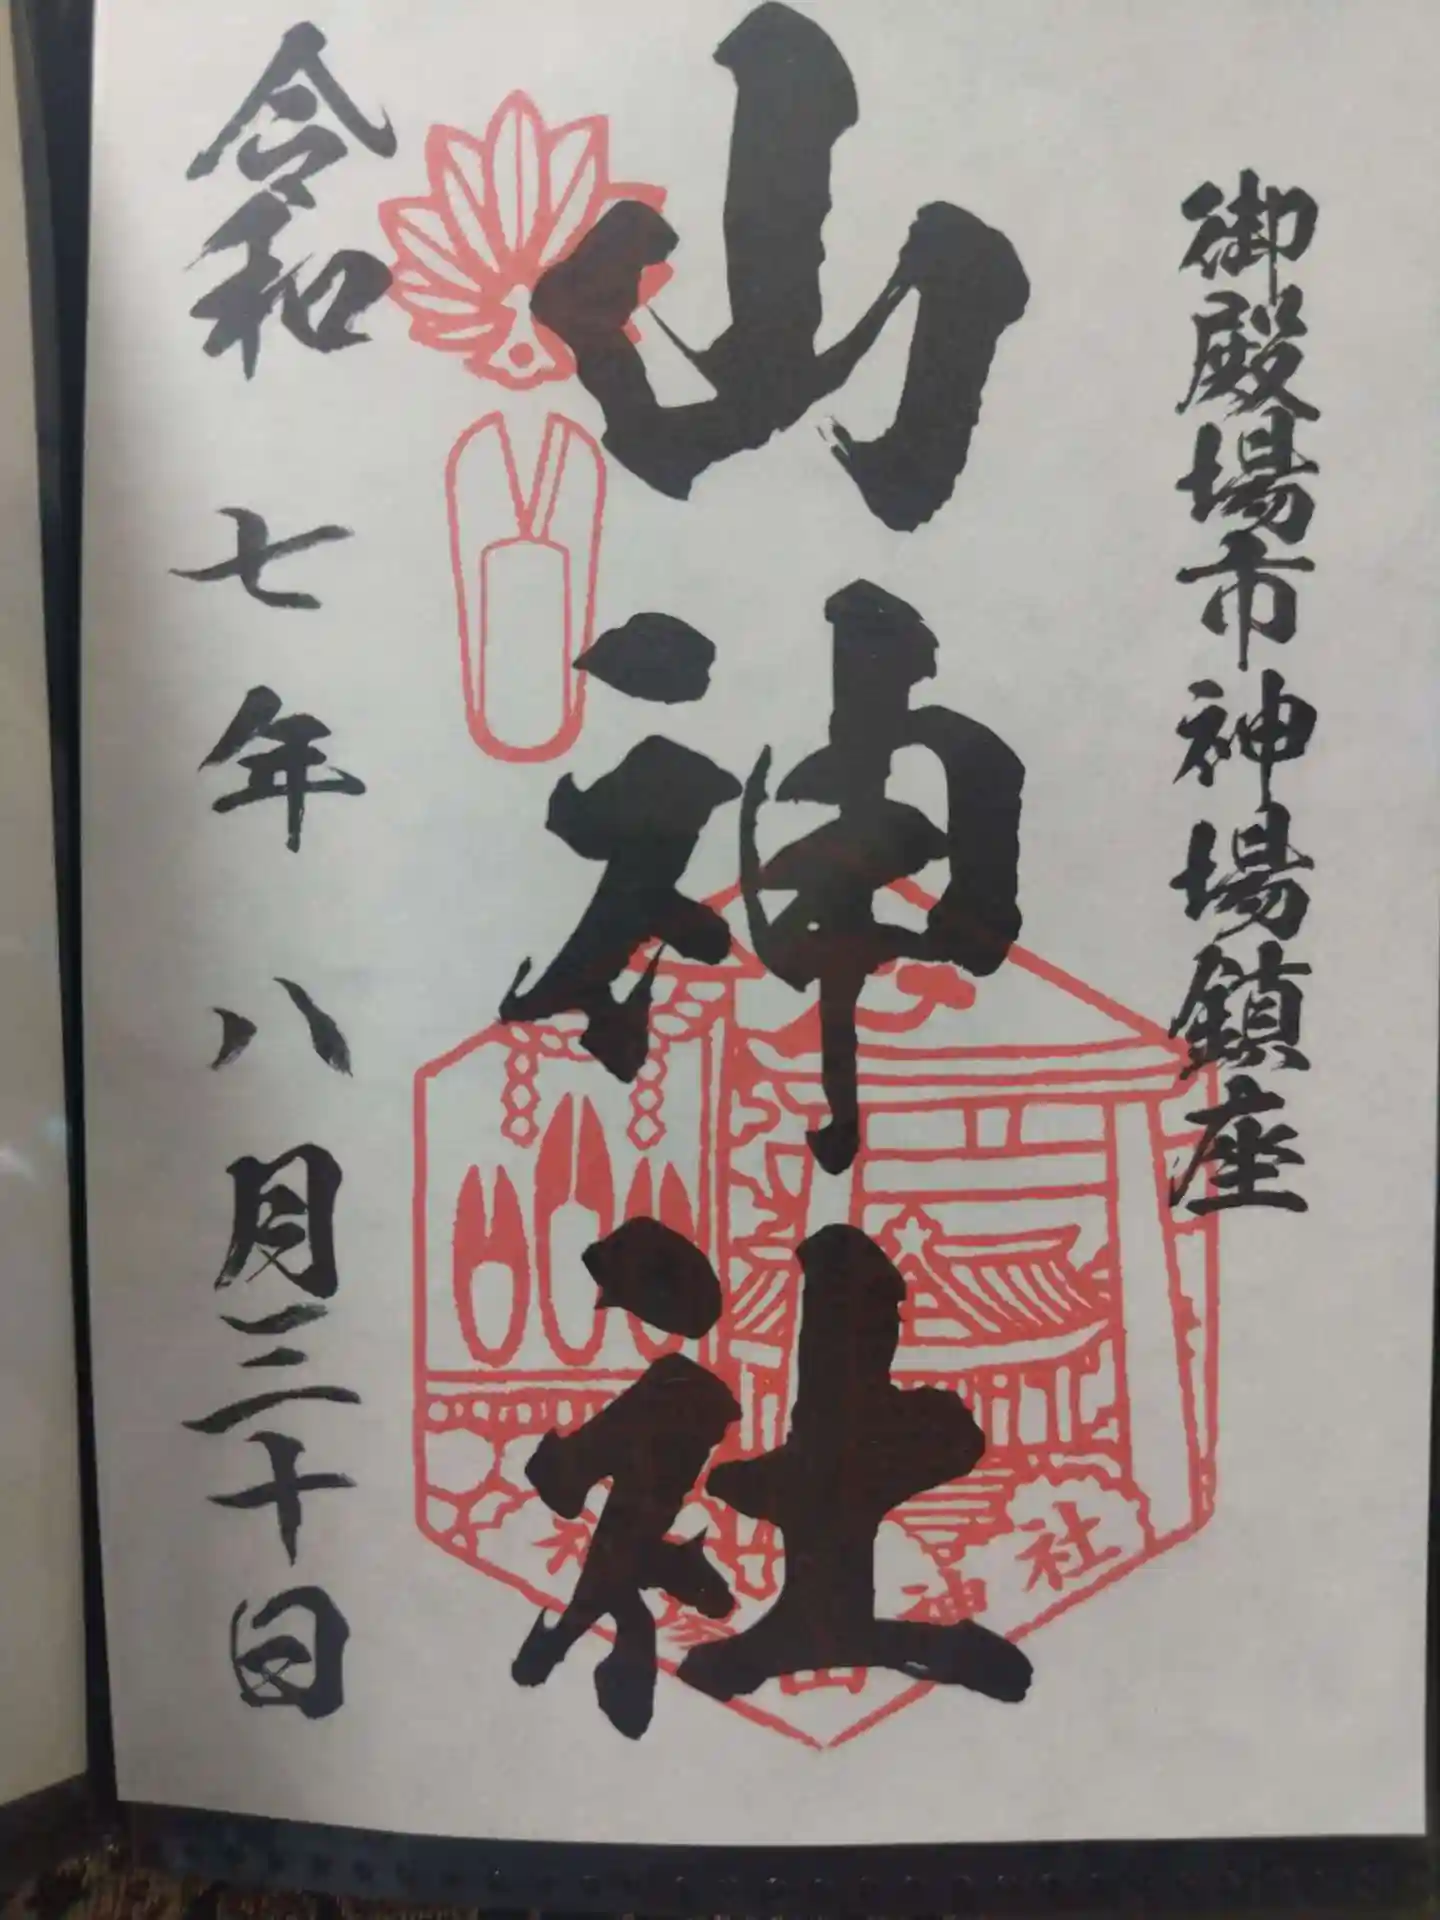 御殿場市神場鎮座
山神社
令和七年八月三十日
社
神
山